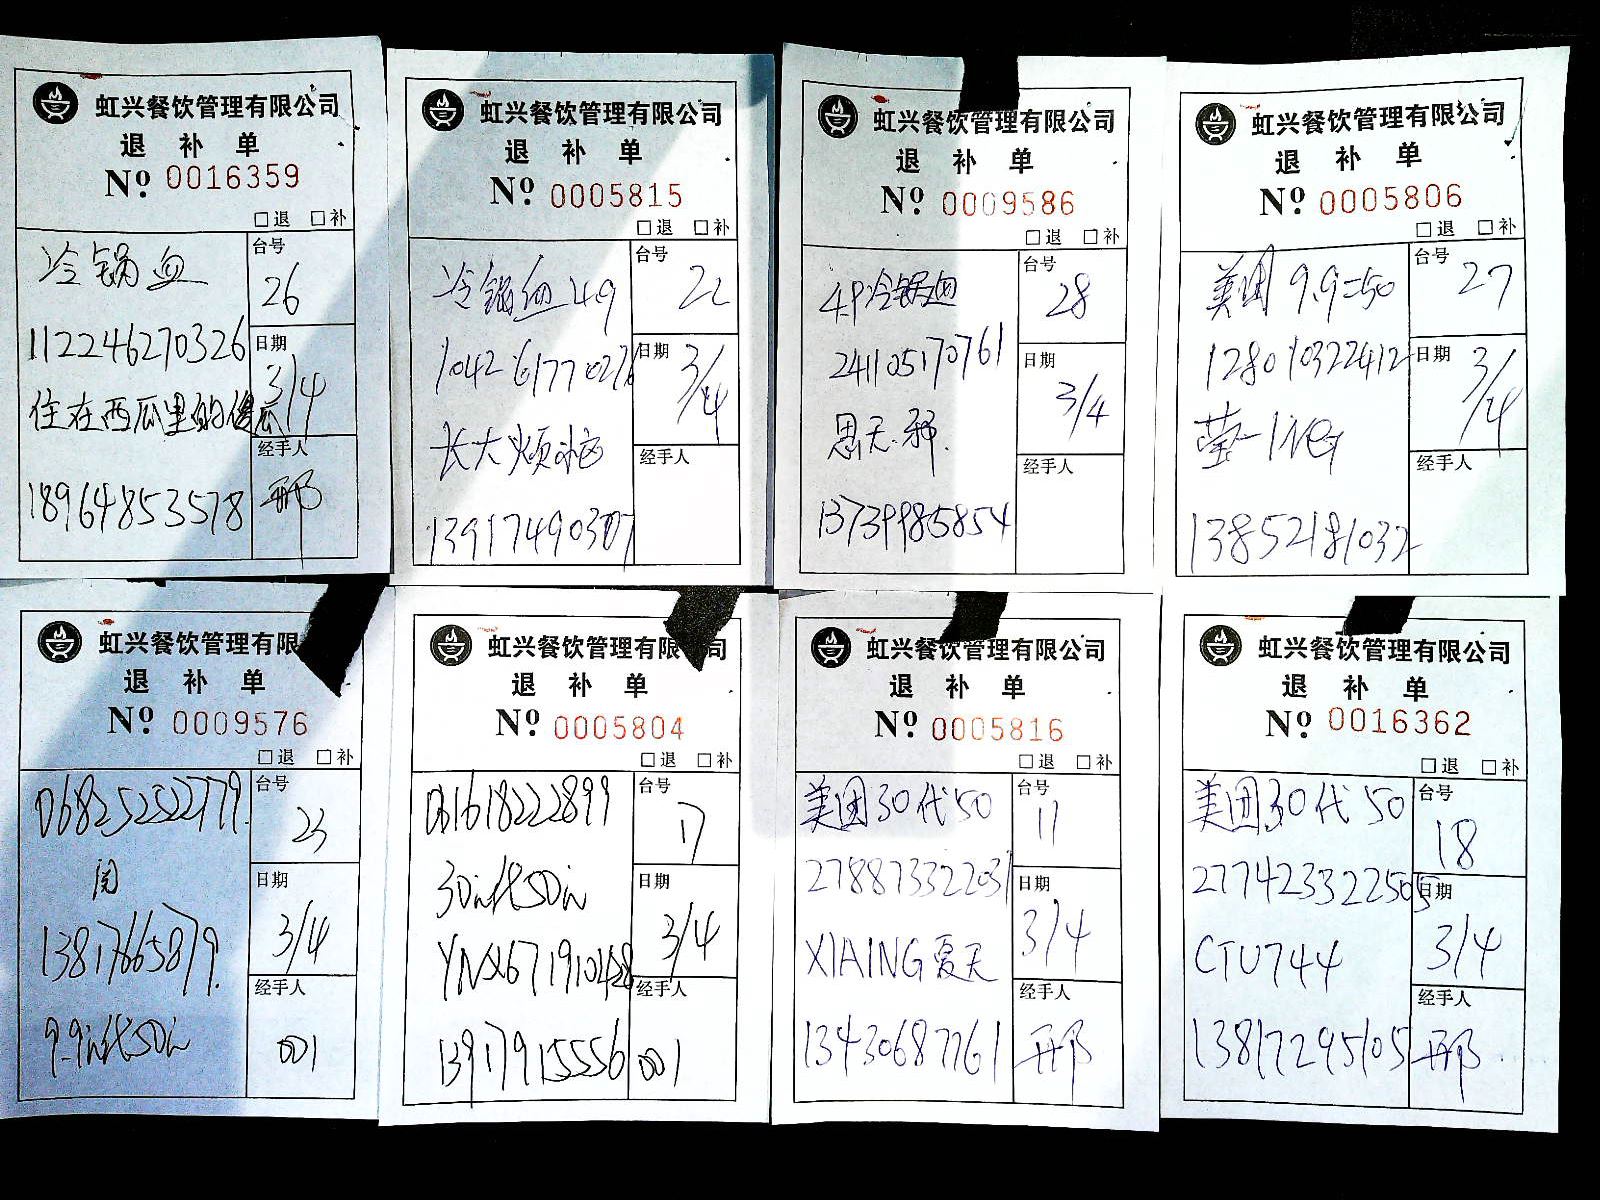 虹兴餐饮管理有限公司
退 补 单
No. 0016359
□退 □补
冷锅血
112246270326
住在西瓜里的傻瓜
18964853578
台号
26
日期
3/4
经手人
邢
虹兴餐饮管理有限公司
退 补 单
No. 0005815
□退 □补
冷锅血 4.9
104261770276
长大烦恼
13917490377
台号
22
日期
3/4
经手人
虹兴餐饮管理有限公司
退 补 单
No. 0009586
□退 □补
4.9冷锅血
241105170761
思无邪.
13739985854
台号
28
日期
3/4
经手人
虹兴餐饮管理有限公司
退 补 单
No. 0005806
□退 □补
美团 9.9=50
128010322412
13852181032
台号
27
日期
3/4
经手人
虹兴餐饮管理有限
退 补 单
No. 0009576
□退 □补
068252522779.
闵
13817665879.
9.9元代50元
台号
23
日期
3/4
经手人
001
虹兴餐饮管理有限公司
退 补 单
No. 0005804
□退 □补
081618222899
30元代50元
13917915556
台号
17
日期
3/4
经手人
001
虹兴餐饮管理有限公司
退 补 单
No. 0005816
□退 □补
美团30代50
278873322031
XIAING夏天
13430687761
台号
11
日期
3/4
经手人
邢
虹兴餐饮管理有限公司
退 补 单
No. 0016362
□退 □补
美团30代50
277423322505
CTU744
13817295105
台号
18
日期
3/4
经手人
邢